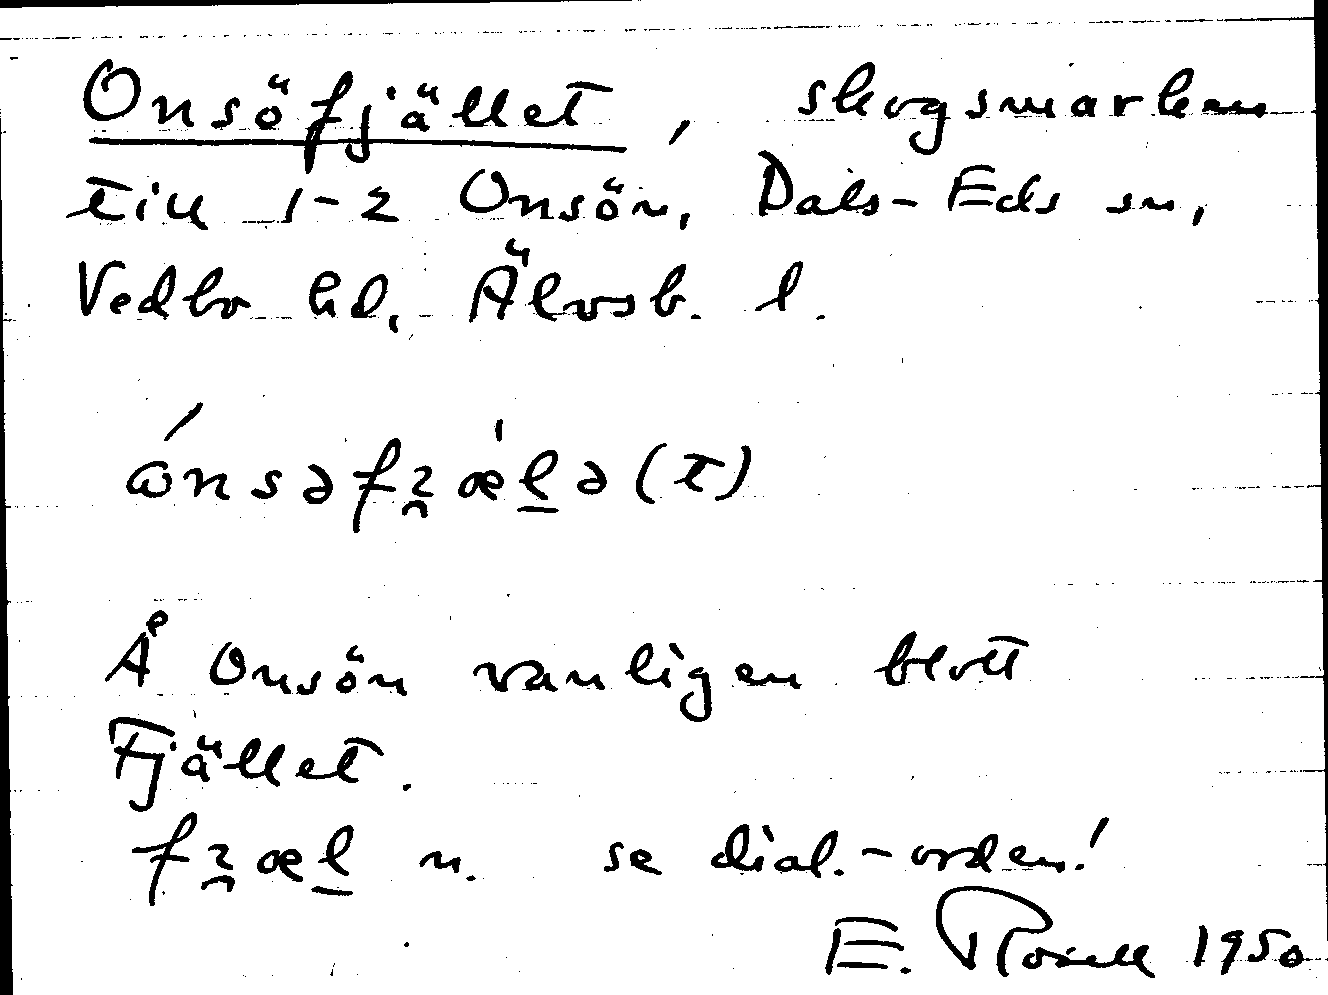 Onsöfjället, skogsmarken
till 1-2 Onsön, Dals-Eds sn,
Vedbo hd, Älvsb. l.
ώnsəfʒæ̀l̲ə(t)
Å Onsön vanligen blott
Fjället.
fʒæl̲ n. se dial.-orden!
E. Rosell 1950